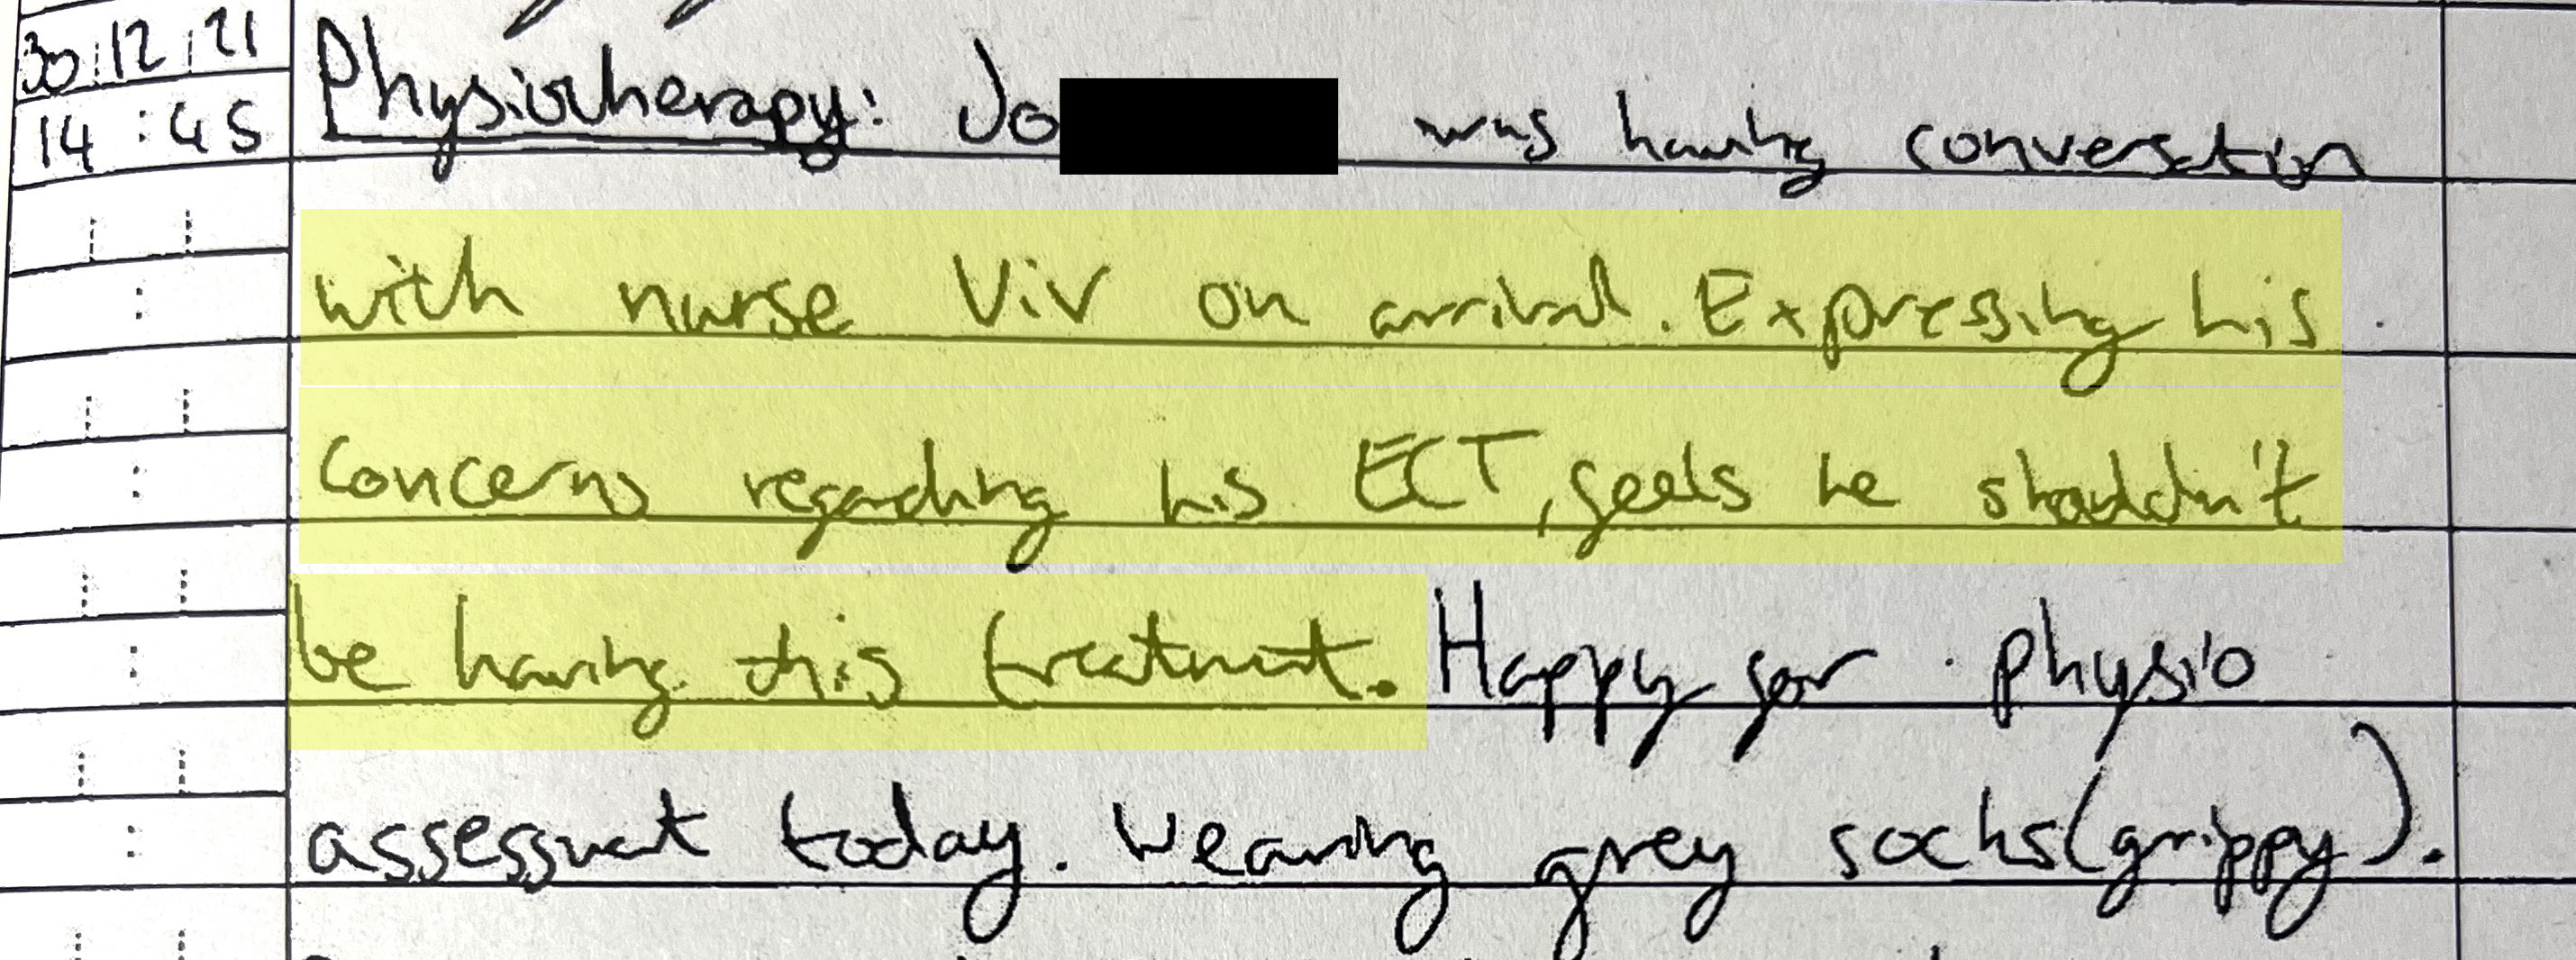 30 12 21 Physiotherapy: Jo was having conversation
14:45
with nurse Viv on arrival. Expressing his
concerns regarding his ECT, feels he shouldn't
be having this treatment. Happy for physio
assessment today. Wearing grey socks (grippy).